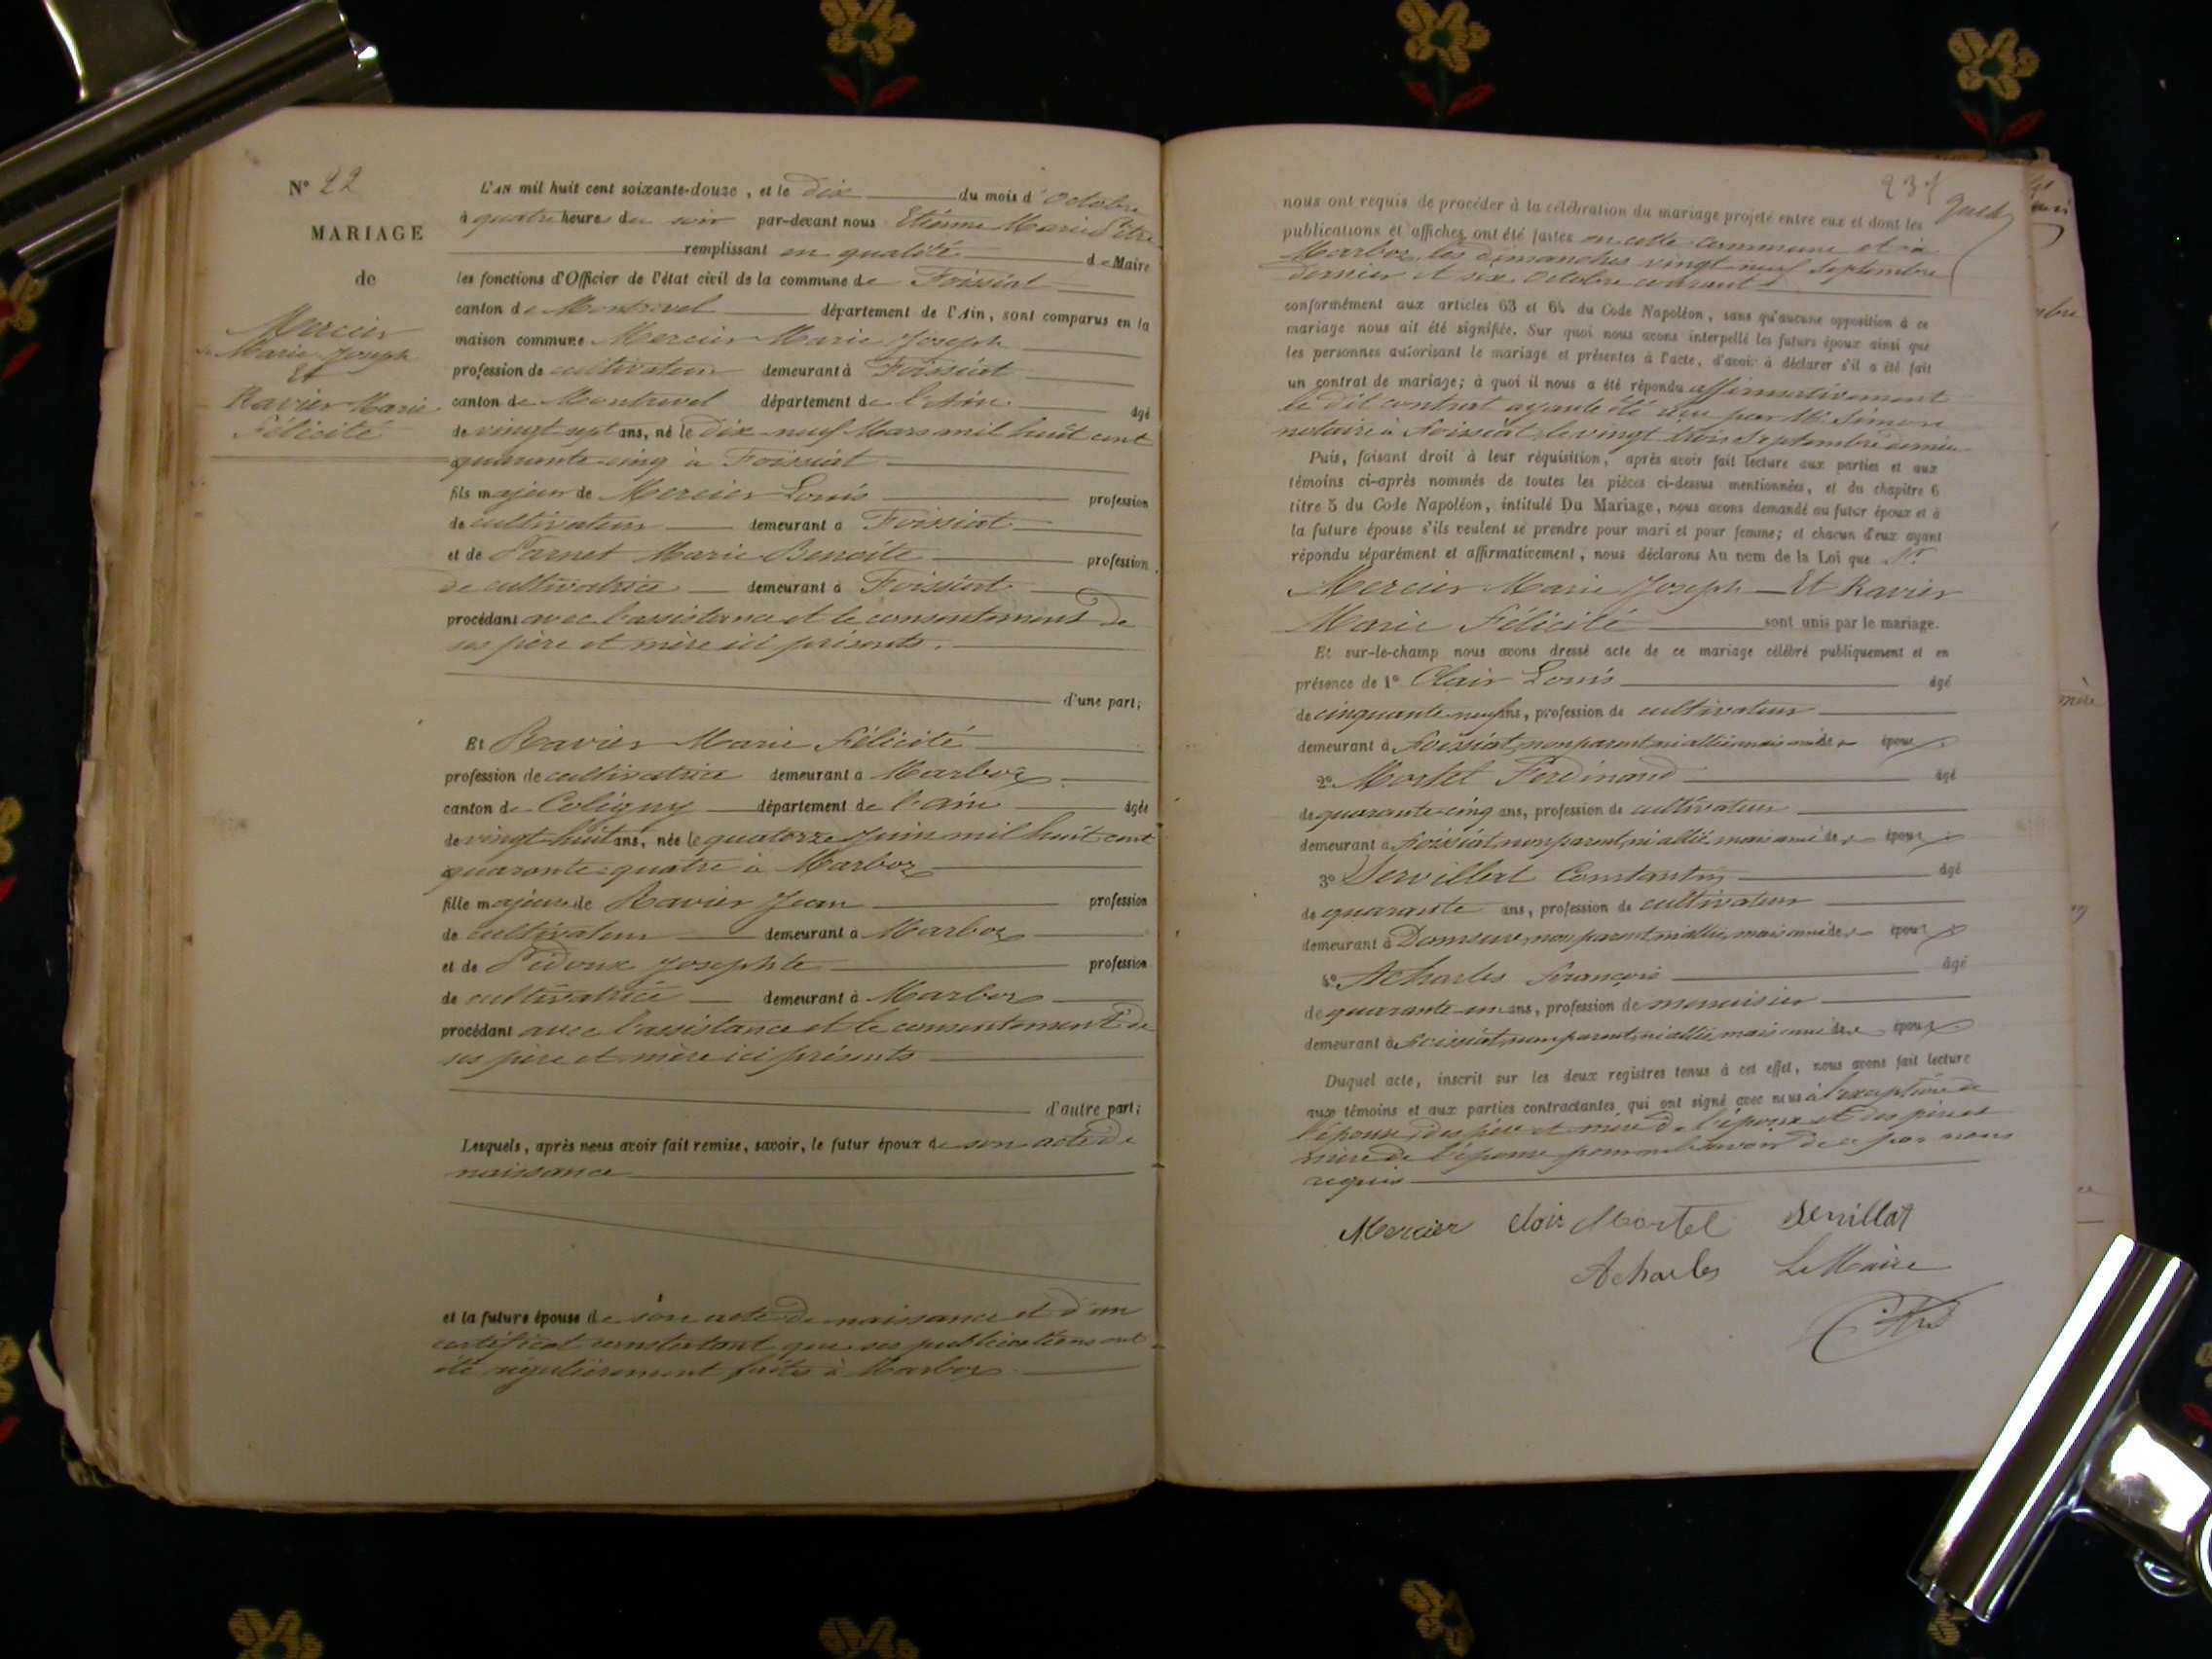 N° 22
MARIAGE
de
Mercier
Marie Joseph
Et
Ravier Marie
Félicité
L'AN mil huit cent soixante-douze, et le Dix du mois d'Octobre
à quatre heures du soir par-devant nous Etienne Marie Pitre
remplissant en qualité de Maire
les fonctions d'Officier de l'état civil de la commune de Foissiat
canton de Montrevel département de l'Ain, sont comparus en la
maison commune Mercier Marie Joseph
profession de cultivateur demeurant à Foissiat
canton de Montrevel département de l'Ain âgé
de vingt sept ans, né le Dix-neuf Mars mil huit cent
quarante-cinq à Foissiat
fils majeur de Mercier Louis profession
de cultivateur demeurant à Foissiat
et de Parnet Marie Benoite profession
de cultivatrice demeurant à Foissiat
procédant avec l'assistance et le consentement de
ses père et mère ici présents.
d'une part;
Et Ravier Marie Félicité
profession de cultivatrice demeurant à Marboz
canton de Coligny département de l'ain âgée
de vingt-huit ans, née le quatorze Juin mil huit cent
quarante-quatre à Marboz
fille majeure de Ravier Jean profession
de cultivateur demeurant à Marboz
et de Pidoux Josephte profession
de cultivatrice demeurant à Marboz
procédant avec l'assistance et le consentement de
ses père et mère ici présents
d'autre part;
Lesquels, après nous avoir fait remise, savoir, le futur époux de son acte de
naissance
et la future épouse de son acte de naissance et d'un
certificat constatant que ses publications ont
été régulièrement faites à Marboz
237
nous ont requis de procéder à la célébration du mariage projeté entre eux et dont les
publications et affiches ont été faites en cette commune et à
Marboz les dimanches vingt-neuf Septembre
dernier et six Octobre courant
conformément aux articles 63 et 64 du Code Napoléon, sans qu'aucune opposition à ce
mariage nous ait été signifiée. Sur quoi nous avons interpellé les futurs époux ainsi que
les personnes autorisant le mariage et présentes à l'acte, d'avoir à déclarer s'il a été fait
un contrat de mariage; à quoi il nous a été répondu affirmativement
le dit contrat ayant été reçu par Me Simon
notaire à Foissiat le vingt trois Septembre dernier
Puis, faisant droit à leur réquisition, après avoir fait lecture aux parties et aux
témoins ci-après nommés de toutes les pièces ci-dessus mentionnées, et du chapitre 6
titre 5 du Code Napoléon, intitulé Du Mariage, nous avons demandé au futur époux et à
la future épouse s'ils veulent se prendre pour mari et pour femme; et chacun d'eux ayant
répondu séparément et affirmativement, nous déclarons Au nom de la Loi que Sr
Mercier Marie Joseph Et Ravier
Marie Félicité sont unis par le mariage.
Et sur-le-champ nous avons dressé acte de ce mariage célébré publiquement et en
présence de 1° Clair Louis âgé
de cinquante neuf ans, profession de cultivateur
demeurant à Foissiat, non parent, ni allié, mais ami des époux
2° Mortel Ferdinand âgé
de quarante-cinq ans, profession de cultivateur
demeurant à Foissiat, non parent, ni allié, mais ami des époux
3° Servillat Constantin âgé
de quarante ans, profession de cultivateur
demeurant à Domsure, non parent, ni allié, mais ami des époux
4° Acharles François âgé
de quarante-un ans, profession de menuisier
demeurant à Foissiat, non parent, ni allié, mais ami des époux
Duquel acte, inscrit sur les deux registres tenus à cet effet, nous avons fait lecture
aux témoins et aux parties contractantes qui ont signé avec nous à l'exception de
l'épouse, des père et mère de l'époux et des père et
mère de l'épouse pour ne savoir de ce par nous
requis
Mercier Clair Mortel Servillat
Acharles Le Maire